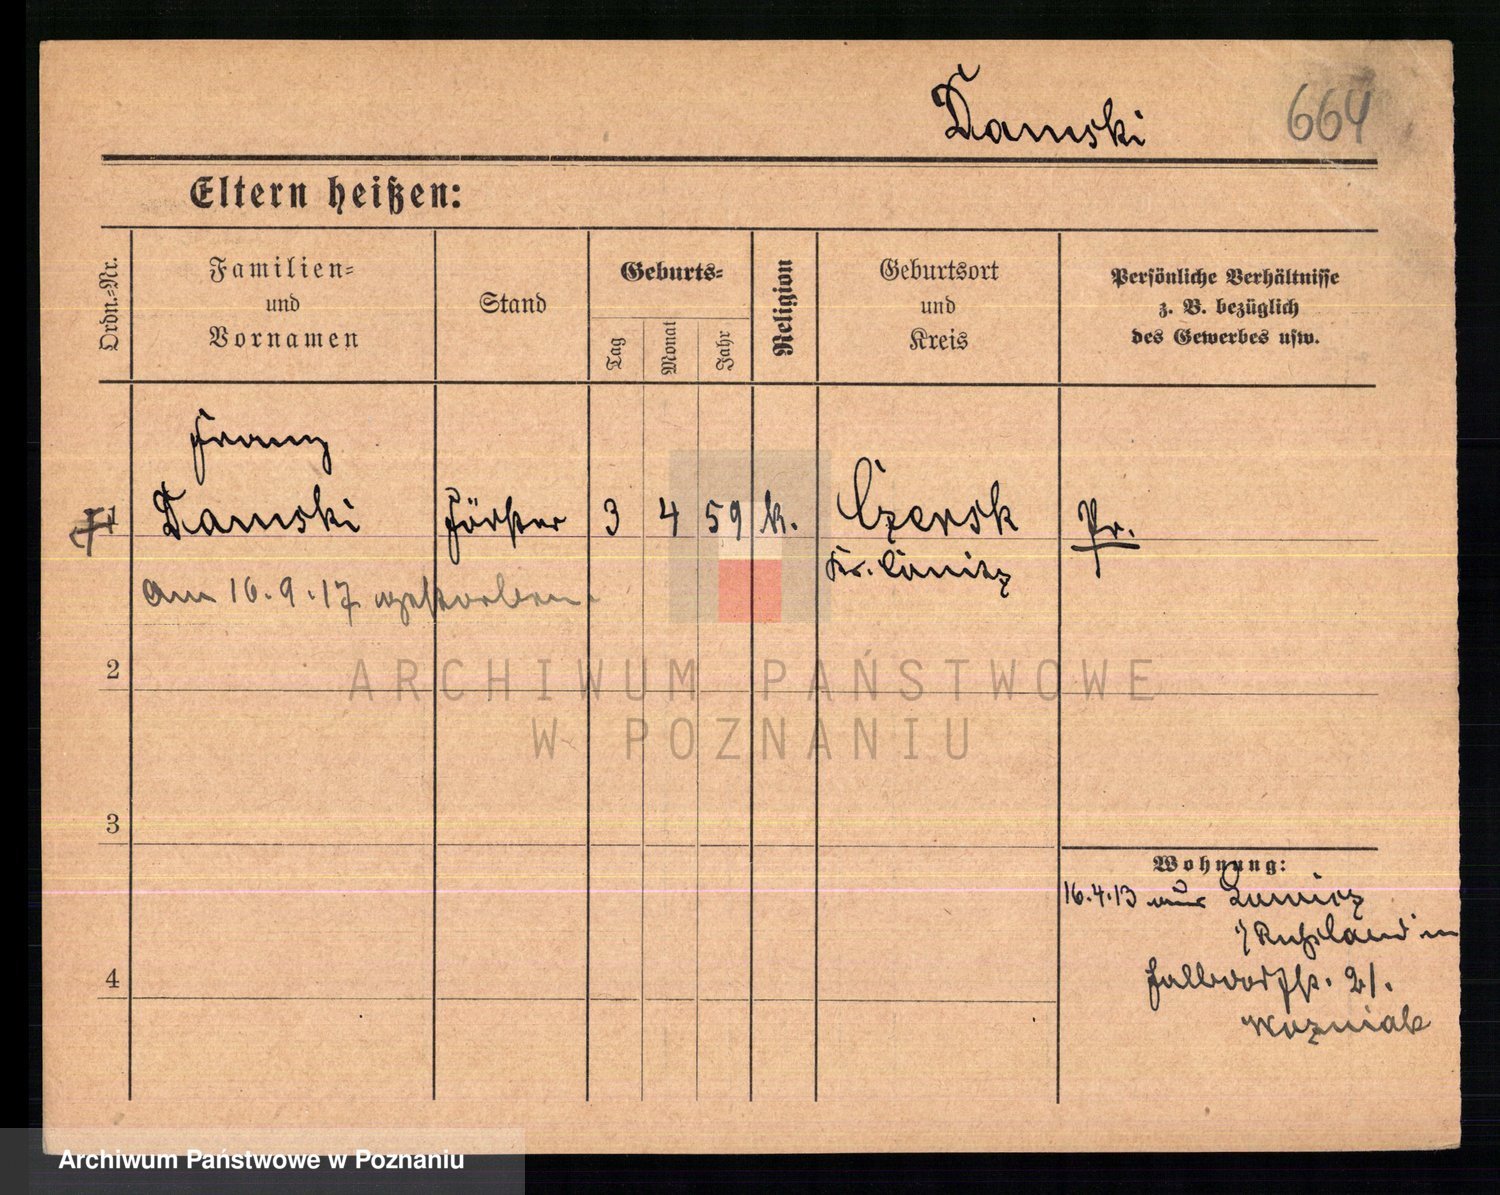 Damski 664
Eltern heißen:
Ordn.=Nr.
Familien=
und
Vornamen
Stand
Geburts=
Tag
Monat
Jahr
Religion
Geburtsort
und
Kreis
Persönliche Verhältnisse
z. B. bezüglich
des Gewerbes usw.
Franz
1 Damski Förster 3 4 59 k. Czersk Pr.
Kr. Konitz
Am 16.9.17 gestorben.
2
3
4
Wohnung:
16.4.13 aus Lowicz
i/Russland in
21.
Wozniak
ARCHIWUM PAŃSTWOWE
W POZNANIU
Archiwum Państwowe w Poznaniu